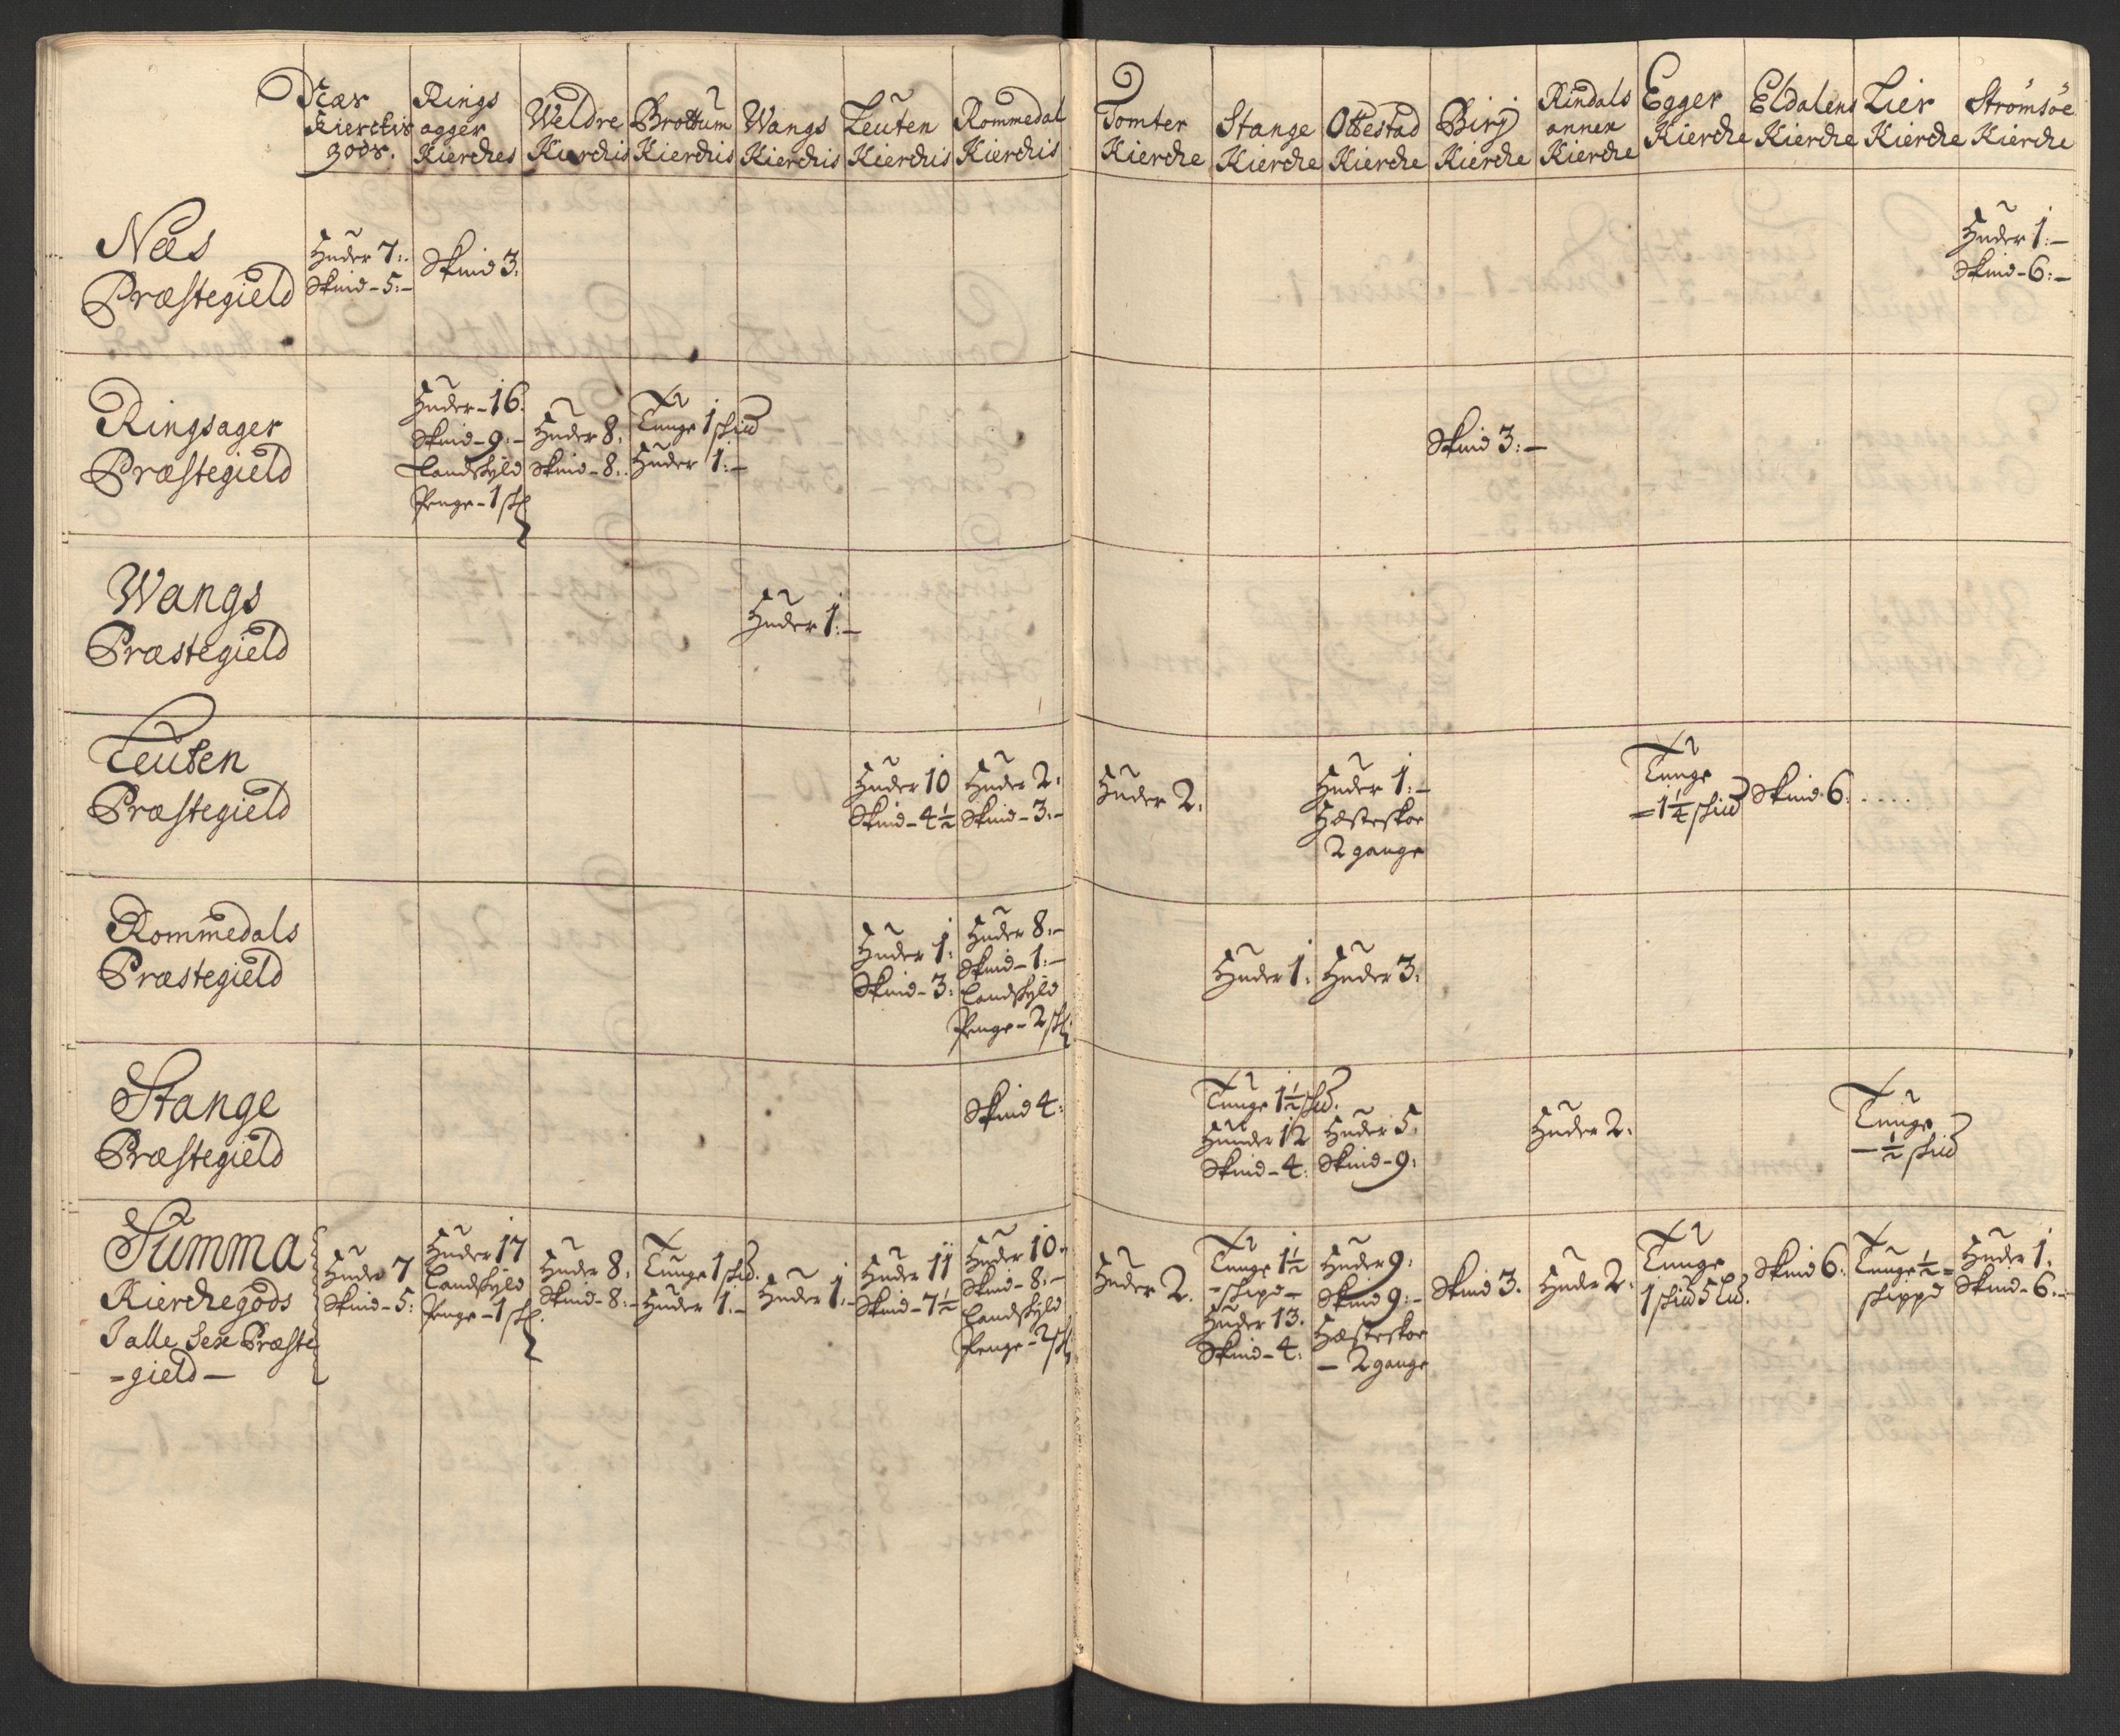 Næs
Kierckis
godr.
Rings
agger
Kierches
Weldre
Kierchis
Brottum
Kierchis
Wangs
Kierchis
Leuten
Kierchis
Rommedal
Kierchis
Tomter
Kierche
Stange
Kierche
Ottestad
Kierche
Birj
Kierche
Rindals
annex
Kierche
Egger
Kierche
Eldalens
Kierche
Lier
Kierche
Strömsöe
Kierche
Næs
Præstegield
Huder 7:-
Skind - 5:-
Skind 3:
Huder 1:-
Skind - 6:-
Ringsager
Præstegield
Huder - 16.
Skind - 9:-
Landskyld
Penge - 1 sk
Huder 8:
Skind - 8:
Tunge 1 skud
Huder 1:-
Skind 3:-
Wangs
Præstegield
Huder 1:-
Leuten
Præstegield
Huder 10
Skind - 4½
Huder 2:
Skind - 3:-
Huder 2:
Huder 1:-
Hesteskoe
2 gange
Tunge
=1¼ skud
Skind 6:....
Rommedals
Præstegield
Huder 1:
Skind - 3:
Huder 8:-
Skind - 1:-
Landskyld
Penge - 2 sk
Huder 1:
Huder 3:
Stange
Præstegield
Skind 4:
Tunge 1½ skud.
Hunder 12
Skind - 4:
Huder 5:
Skind - 9:
Huder 2:
Tunge
- ½ skud
Summa
Kierchegods
I alle Sex Præste
=gield-
Huder 7
Skind - 5:
Huder 17
Landskyld
Penge - 1 sk.
Huder 8:
Skind - 8:-
Tunge 1 skud.
Huder 1:-
Huder 1:-
Huder 11
Skind - 7½
Huder 10:
Skind - 8:-
Landskyld
Penge - 2 sk
Huder 2.
Tunge 1½
-skipd-
Huder 13.
Skind - 4:
Huder 9:
Skind 9:-
Hesteskoe
- 2 gange
Skind 3.
Huder 2:
Tunge
1 skud 5 Lud.
Skind 6:
Tunge ½=
skippd
Huder 1.
Skind - 6:-